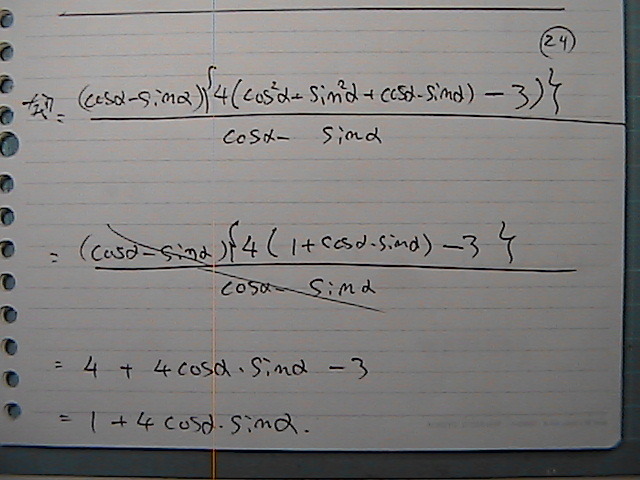 24
左式 = (cosα-sinα){4(cos²α+sin²α+cosα·sinα) - 3)} / cosα - sinα
= (cosα-sinα){4(1+cosα·sinα) - 3} / cosα - sinα
= 4 + 4cosα·sinα - 3
= 1 + 4cosα·sinα.